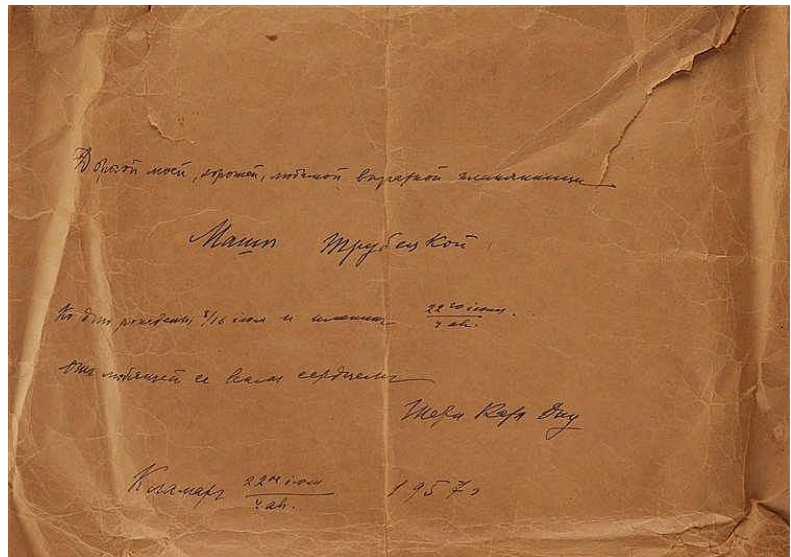 Дорогой моей, хорошей, любимой внучатной племяннице
Маше Трубецкой
Ко дню рождения /16 июля и именин 22го июля / 4 ав.
отъ любящей ее всемъ сердцемъ
Кламаръ 22го июля / 4 ав. 1957 г